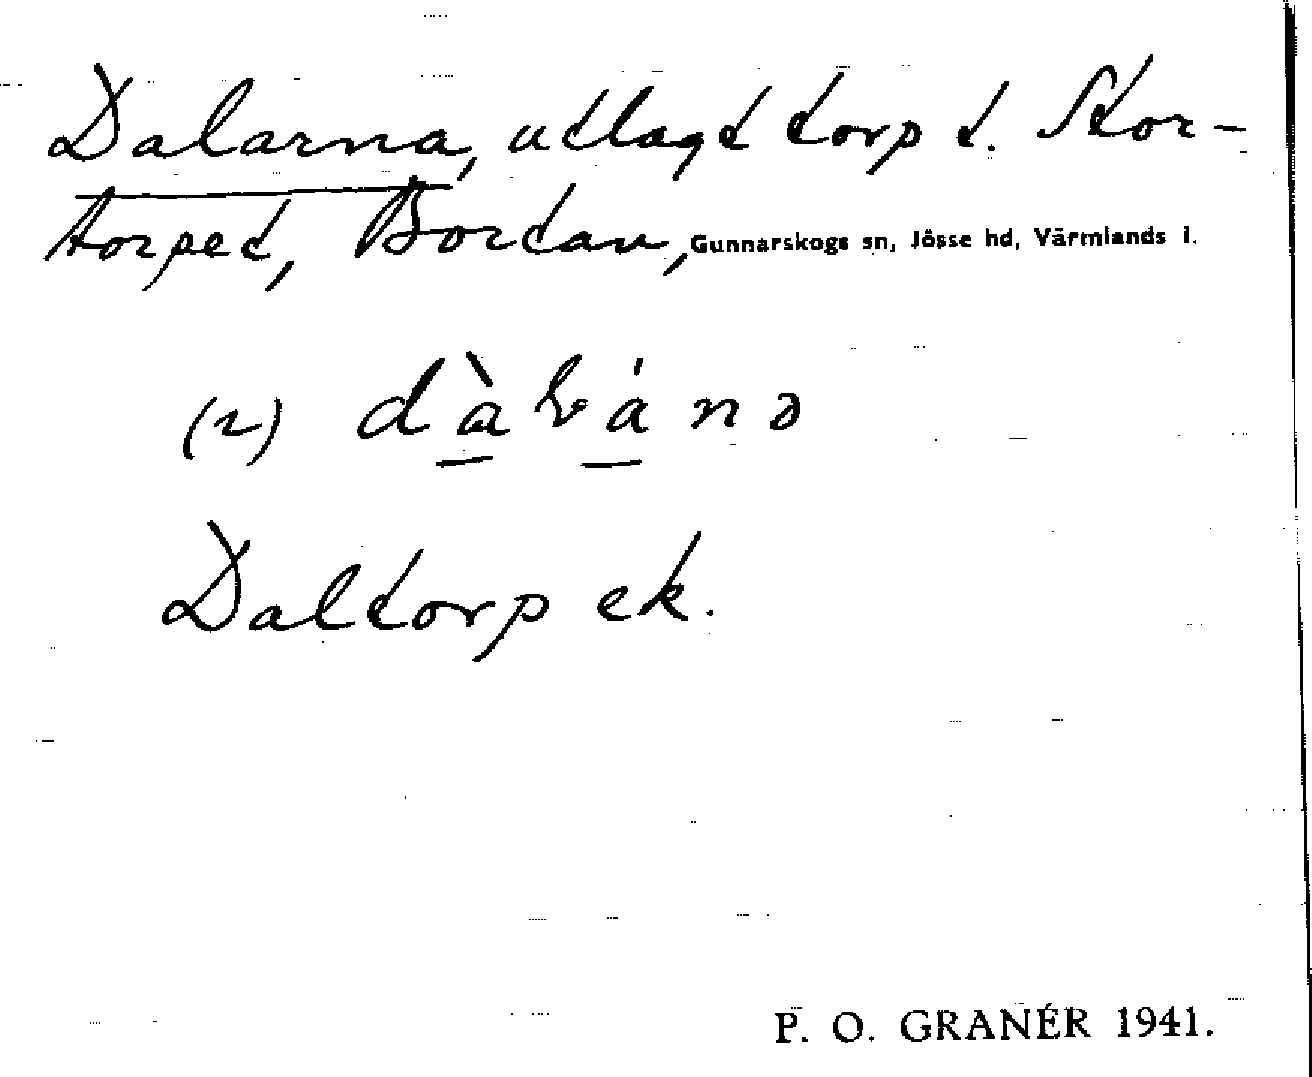 Dalarna, utlagt torp t. Stor-
torpet, Bortan, Gunnarskogs sn, Jösse hd, Värmlands l.
(2)
Daltorp ek.
P. O. GRANÉR 1941.